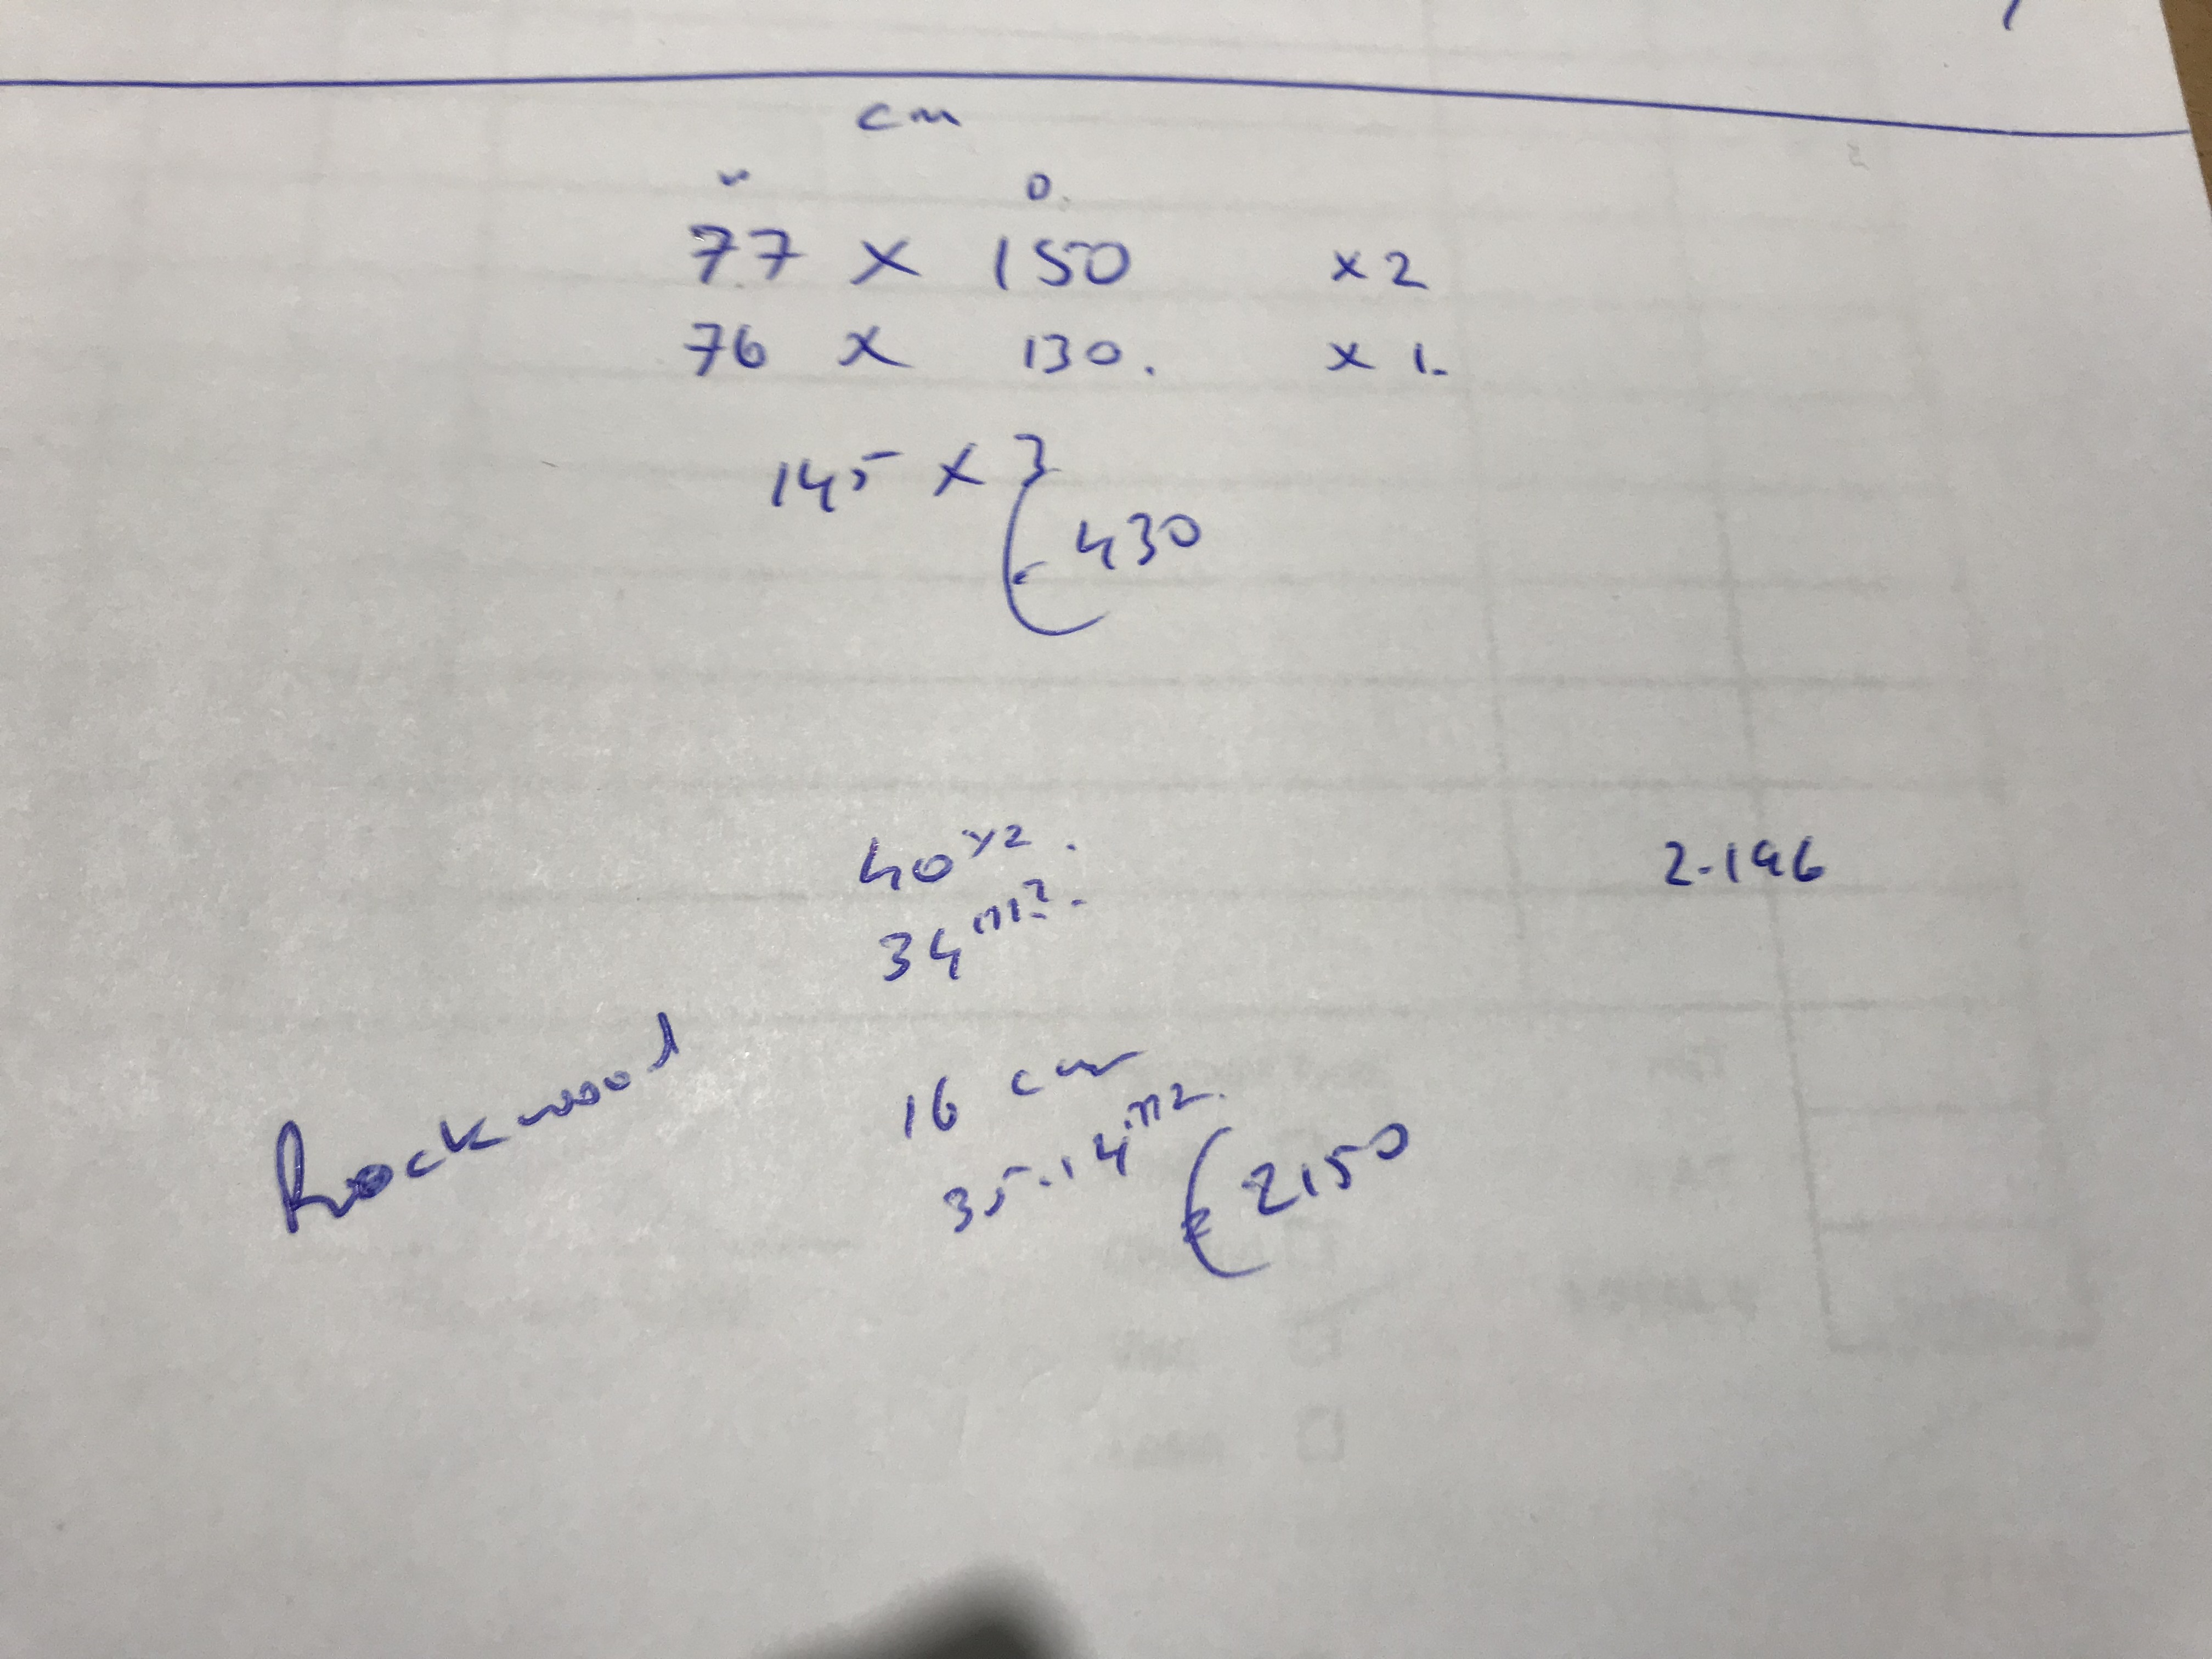 cm
77 x 150 x2
76 x 130. x 1.
145 x 3
€ 430
40 x2.
34 m2.
2.196
Rockwool
16 cm
35.14 m2.
€ 2150